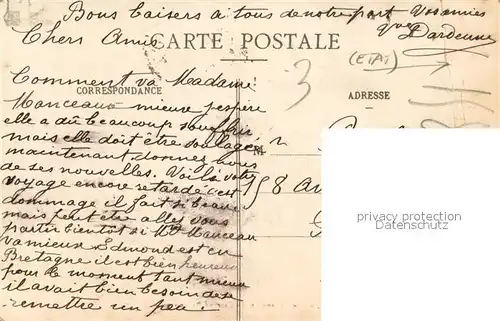 Bons baisers à tous de notre part Vos amies
Dardenne
Chers Amis CARTE POSTALE
(ETAT)
3
Comment va Madame
CORRESPONDANCE
ADRESSE
Manceau mieux j'espère
elle a dû beaucoup souffrir
mais elle doit être soulagée
M
maintenant donnez nous
de ses nouvelles. Voilà votre
158 A
voyage encore retardé c'est
dommage il fait si beau
mais peut être allez vous
partir bientôt si Mme Manceau
va mieux Edmond est en
Bretagne il est bien heureux
pour le moment tant mieux
il avait bien besoin de se
remettre un peu.
privacy protection
Datenschutz